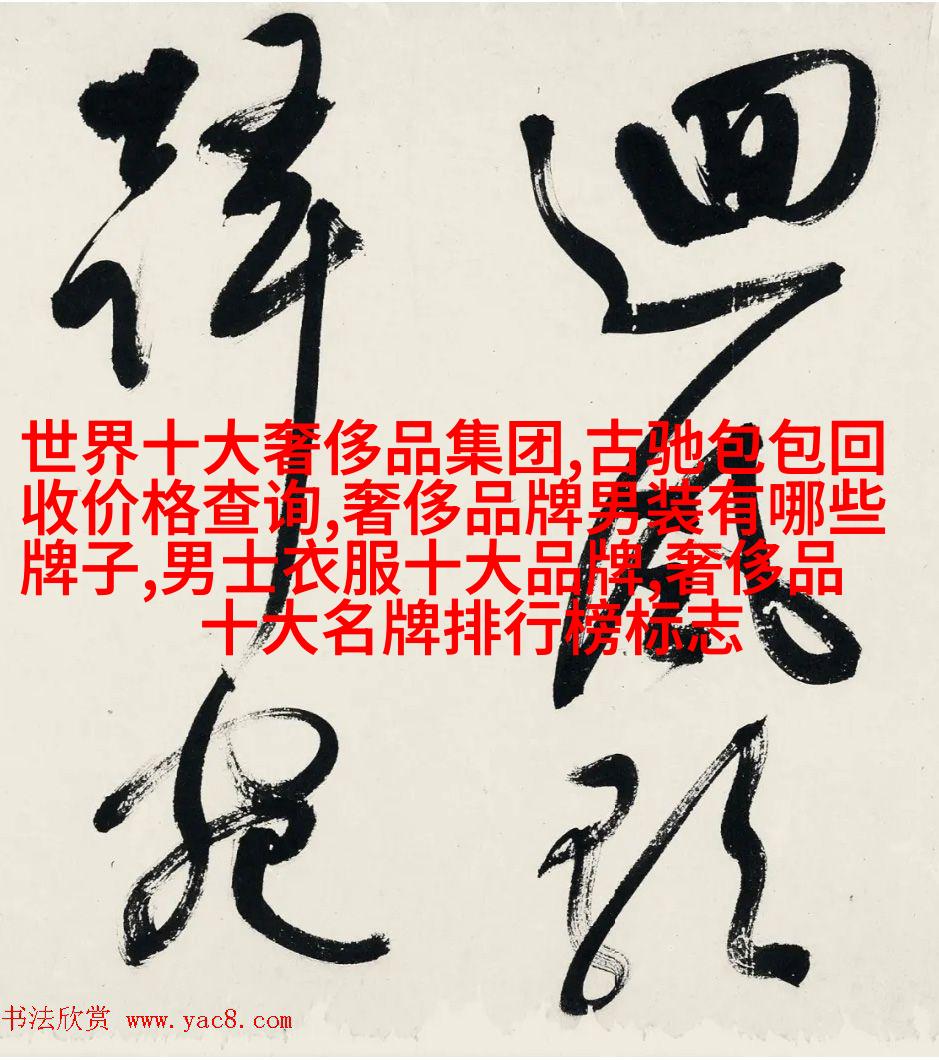 迴風
世界十大奢侈品集团,古驰包包回
收价格查询,奢侈品牌男装有哪些
牌子,男士衣服十大品牌,奢侈品
十大名牌排行榜标志
书法欣赏 www.yac8.com